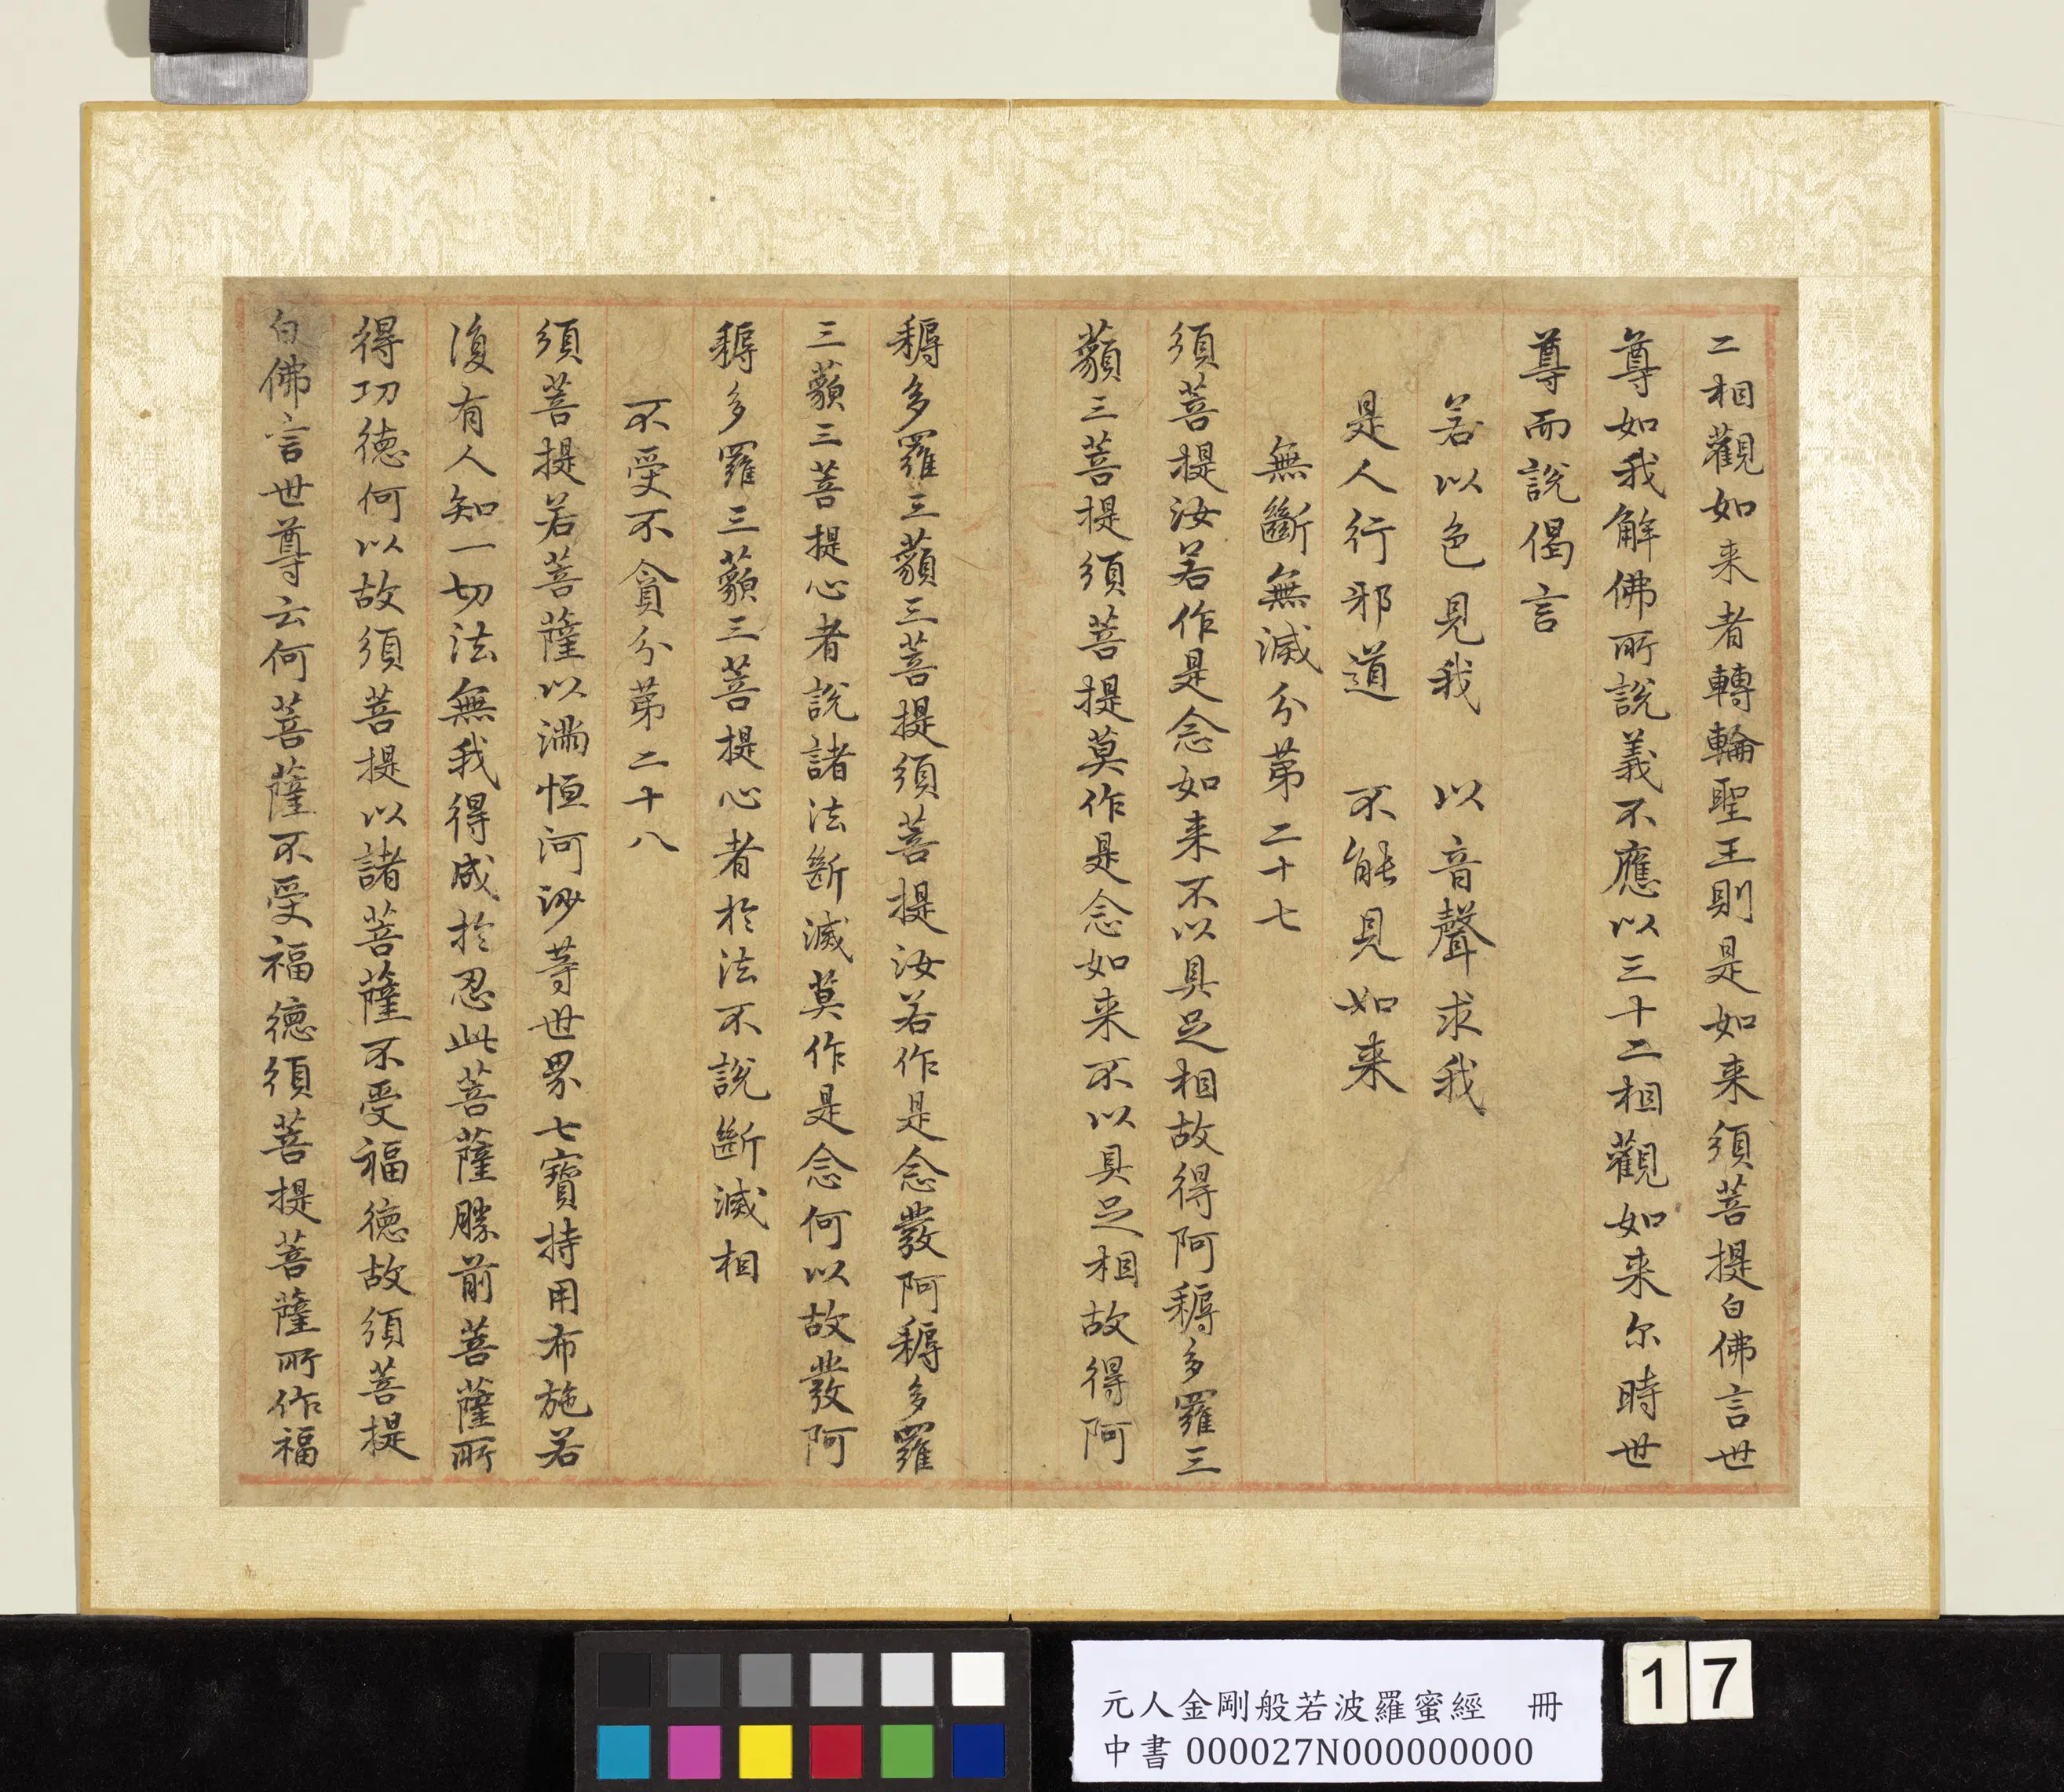 二相觀如来者轉輪聖王則是如来須菩提白佛言世
尊如我解佛所說義不應以三十二相觀如来尔時世
尊而說偈言
若以色見我　以音聲求我
是人行邪道　不能見如来
無斷無滅分第二十七
須菩提汝若作是念如来不以具足相故得阿耨多羅三
藐三菩提須菩提莫作是念如来不以具足相故得阿
耨多羅三藐三菩提須菩提汝若作是念發阿耨多羅
三藐三菩提心者說諸法斷滅莫作是念何以故發阿
耨多羅三藐三菩提心者於法不說斷滅相
不受不貪分第二十八
須菩提若菩薩以滿恒河沙等世界七寶持用布施若
復有人知一切法無我得成於忍此菩薩勝前菩薩所
得功德何以故須菩提以諸菩薩不受福德故須菩提
白佛言世尊云何菩薩不受福德須菩提菩薩所作福
元人金剛般若波羅蜜經　冊
中書 000027N000000000
17